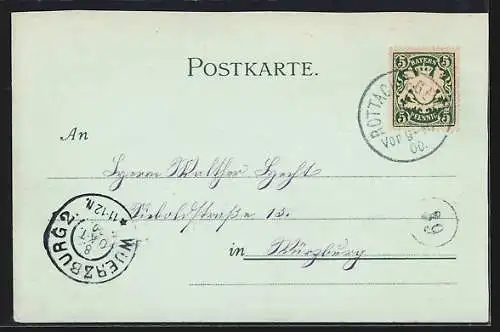 POSTKARTE.
5 BAYERN 5
5 PFENNIG 5
ROTTAC
Vor. 9-10
00.
An
Herrn Walther Hecht
Sieboldstraße 13.
in Würzburg
WUERZBURG 2.
8
OKT.
11-12 N.